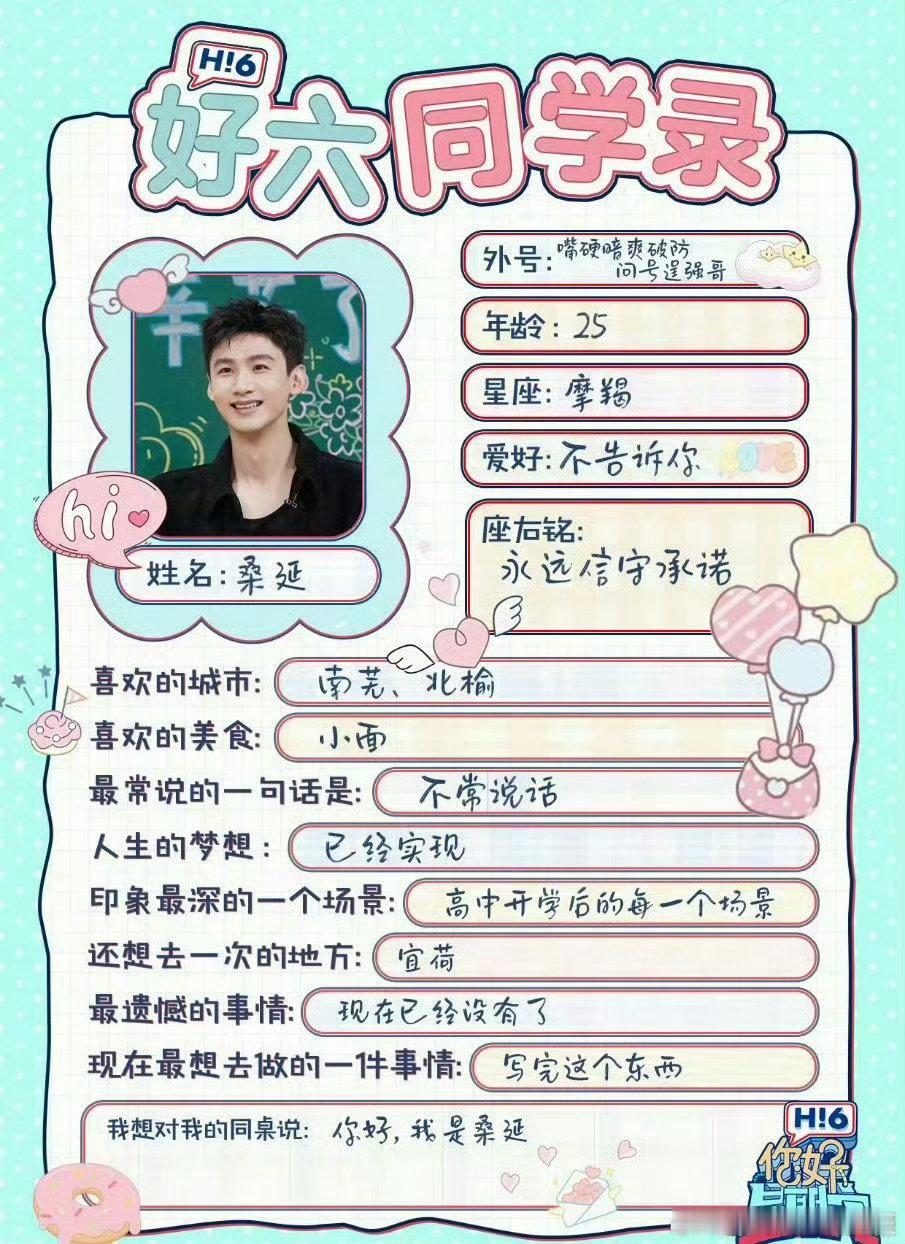 H!6
好六同学录
辛苦了
外号:嘴硬暗爽破防
问号逞强哥
年龄:25
星座:摩羯
爱好:不告诉你
LOVE
座右铭:
永远信守承诺
hi
姓名:桑延
喜欢的城市:南芜、北榆
喜欢的美食:小面
最常说的一句话是:不常说话
人生的梦想:已经实现
印象最深的一个场景:高中开学后的每一个场景
还想去一次的地方:宜荷
最遗憾的事情:现在已经没有了
现在最想去做的一件事情:写完这个东西
我想对我的同桌说:你好,我是桑延
H!6
你好